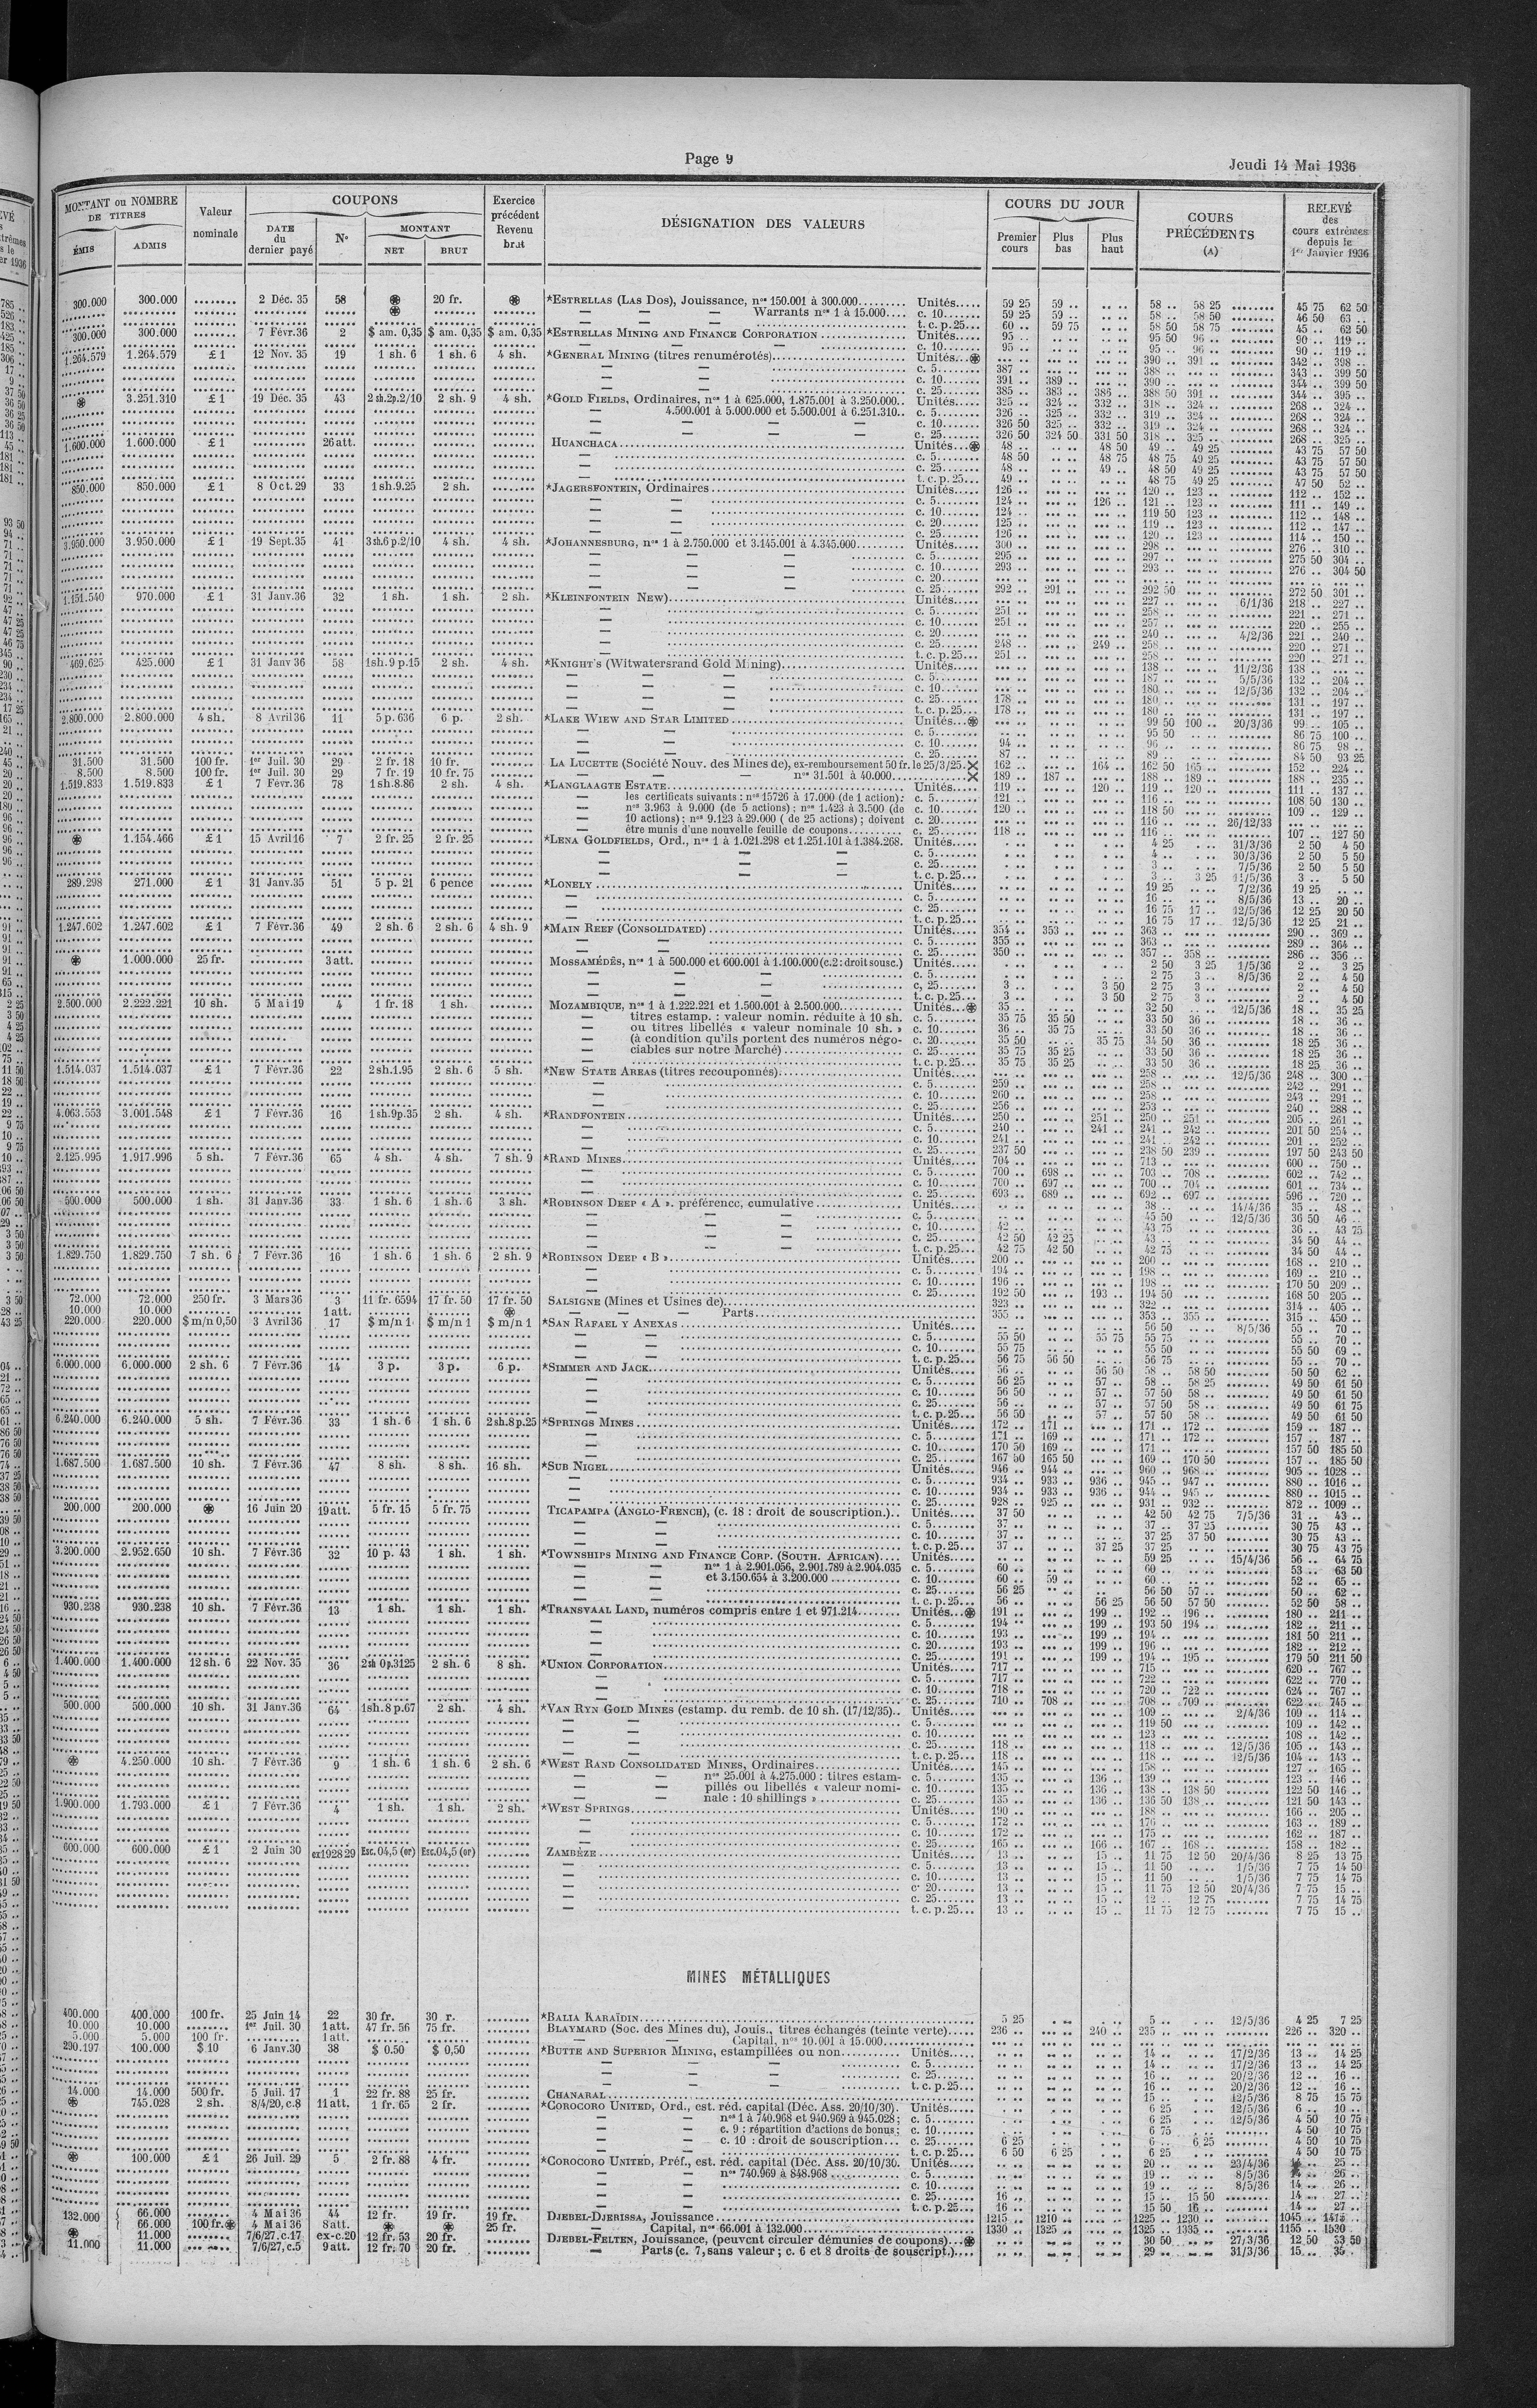 Page 9
Jeudi 14 Mai 1936
MONTANT ou NOMBRE DE TITRES
ÉMIS ADMIS
Valeur nominale
COUPONS
DATE du dernier payé
N°
MONTANT
NET BRUT
Exercice précédent Revenu brut
DÉSIGNATION DES VALEURS
COURS DU JOUR
Premier cours Plus bas Plus haut
COURS PRÉCÉDENTS (A)
RELEVÉ des cours extrêmes depuis le 1er Janvier 1936
300.000 300.000 ........ 2 Déc. 35 58 ⊛ 20 fr. ⊛ *ESTRELLAS (LAS DOS), Jouissance, nos 150.001 à 300.000......... Unités..... 59 25 59 .. 58 .. 58 25 45 75 62 50
— — — Warrants nos 1 à 15.000.... c. 10....... 59 25 59 .. 58 .. 58 50 46 50 63 ..
t. c. p. 25... 60 .. 59 75 58 50 58 75 45 .. 62 50
300.000 300.000 ........ 7 Févr.36 2 $ am. 0,35 $ am. 0,35 $ am. 0,35 *ESTRELLAS MINING AND FINANCE CORPORATION Unités..... 95 .. 95 50 96 .. 90 .. 119 ..
c. 10....... 95 .. 95 .. 96 .. 90 .. 119 ..
1.264.579 1.264.579 £ 1 12 Nov. 35 19 1 sh. 6 1 sh. 6 4 sh. *GENERAL MINING (titres renumérotés) Unités...⊛ 390 .. 391 .. 342 .. 398 ..
c. 5....... 387 .. 388 .. 343 .. 399 50
c. 10....... 391 .. 389 .. 390 .. 344 .. 399 50
c. 25....... 385 .. 383 .. 386 .. 388 50 391 .. 344 .. 395 ..
⊛ 3.251.310 £ 1 19 Déc. 35 43 2 sh.2p.2/10 2 sh. 9 4 sh. *GOLD FIELDS, Ordinaires, nos 1 à 625.000, 1.875.001 à 3.250.000.. Unités..... 325 .. 324 .. 332 .. 318 .. 324 .. 268 .. 324 ..
— 4.500.001 à 5.000.000 et 5.500.001 à 6.251.310.. c. 5....... 326 .. 325 .. 332 .. 319 .. 324 .. 268 .. 324 ..
c. 10....... 326 50 325 .. 332 .. 319 .. 324 .. 268 .. 324 ..
c. 25....... 326 50 324 50 331 50 318 .. 325 .. 268 .. 325 ..
1.600.000 1.600.000 £ 1 ......... 26 att. HUANCHACA Unités...⊛ 48 .. 48 50 49 .. 49 25 43 75 57 50
c. 5....... 48 50 48 75 48 75 49 25 43 75 57 50
c. 25....... 48 .. 49 .. 48 50 49 25 43 75 57 50
t. c. p. 25... 49 .. 48 75 49 25 47 50 52 ..
850.000 850.000 £ 1 8 Oct. 29 33 1 sh.9.25 2 sh. *JAGERSFONTEIN, Ordinaires Unités..... 126 .. 120 .. 123 .. 112 .. 152 ..
c. 5....... 124 .. 126 .. 121 .. 123 .. 111 .. 149 ..
c. 10....... 124 .. 119 50 123 .. 112 .. 148 ..
c. 20....... 125 .. 119 .. 123 .. 112 .. 147 ..
c. 25....... 126 .. 120 .. 123 .. 114 .. 150 ..
3.950.000 3.950.000 £ 1 19 Sept.35 41 3 sh.6 p.2/10 4 sh. 4 sh. *JOHANNESBURG, nos 1 à 2.750.000 et 3.145.001 à 4.345.000 Unités..... 300 .. 298 .. 276 .. 310 ..
c. 5....... 295 .. 297 .. 275 50 304 ..
c. 10....... 293 .. 293 .. 276 .. 304 50
c. 20.......
c. 25....... 292 .. 291 .. 292 50 272 50 301 ..
1.151.540 970.000 £ 1 31 Janv.36 32 1 sh. 1 sh. 2 sh. *KLEINFONTEIN New) Unités..... 227 .. 6/1/36 218 .. 227 ..
c. 5....... 251 .. 258 .. 221 .. 271 ..
c. 10....... 251 .. 257 .. 220 .. 255 ..
c. 20....... 240 .. 4/2/36 221 .. 240 ..
c. 25....... 248 .. 249 .. 258 .. 220 .. 271 ..
t. c. p. 25... 251 .. 258 .. 220 .. 271 ..
469.625 425.000 £ 1 31 Janv 36 58 1sh.9 p.15 2 sh. 4 sh. *KNIGHT's (Witwatersrand Gold Mining) Unités..... 138 .. 11/2/36 138 .. ..
c. 5....... 187 .. 5/5/36 132 .. 204 ..
c. 10....... 180 .. 12/5/36 132 .. 204 ..
c. 25....... 178 .. 180 .. 131 .. 197 ..
t. c. p. 25... 178 .. 180 .. 131 .. 197 ..
2.800.000 2.800.000 4 sh. 8 Avril 36 11 5 p. 636 6 p. 2 sh. *LAKE WIEW AND STAR LIMITED Unités...⊛ 99 50 100 .. 20/3/36 99 .. 105 ..
c. 5....... 95 50 86 75 100 ..
c. 10....... 94 .. 96 .. 86 75 98 ..
c. 25....... 87 .. 89 .. 84 50 93 25
31.500 31.500 100 fr. 1er Juil. 30 29 2 fr. 18 10 fr. LA LUCETTE (Société Nouv. des Mines de), ex-remboursement 50 fr. le 25/3/25.X 162 .. 164 .. 162 50 165 .. 152 .. 224 ..
8.500 8.500 100 fr. 1er Juil. 30 29 7 fr. 19 10 fr. 75 — — — nos 31.501 à 40.000 X 189 .. 187 .. 188 .. 189 .. 188 .. 235 ..
1.519.833 1.519.833 £ 1 7 Févr.36 78 1 sh.8.86 2 sh. 4 sh. *LANGLAAGTE ESTATE Unités..... 119 .. 120 .. 119 .. 120 .. 111 .. 137 ..
— les certificats suivants : nos 15726 à 17.000 (de 1 action): c. 5....... 121 .. 116 .. 108 50 130 ..
— nos 3.963 à 9.000 (de 5 actions) ; nos 1.423 à 3.500 (de c. 10....... 120 .. 118 50 109 .. 129 ..
— 10 actions) ; nos 9.123 à 29.000 ( de 25 actions) ; doivent c. 20....... 116 .. 26/12/33
— être munis d'une nouvelle feuille de coupons c. 25....... 118 .. 116 .. 107 .. 127 50
⊛ 1.154.466 £ 1 15 Avril16 7 2 fr. 25 2 fr. 25 *LENA GOLDFIELDS, Ord., nos 1 à 1.021.298 et 1.251.101 à 1.384.268. Unités..... 4 25 31/3/36 2 50 4 50
c. 5....... 4 .. 30/3/36 2 50 5 50
c. 25....... 3 .. 7/5/36 2 50 5 50
t. c. p. 25... 3 .. 3 25 11/5/36 3 .. 5 50
289.298 271.000 £ 1 31 Janv.35 51 5 p. 21 6 pence *LONELY Unités..... 19 25 7/2/36 19 25
c. 5....... 16 .. 8/5/36 13 .. 20 ..
c. 25....... 16 75 17 .. 12/5/36 12 25 20 50
t. c. p. 25... 16 75 17 .. 12/5/36 12 25 21 ..
1.247.602 1.247.602 £ 1 7 Févr.36 49 2 sh. 6 2 sh. 6 4 sh. 9 *MAIN REEF (CONSOLIDATED) Unités..... 354 .. 353 .. 363 .. 290 .. 369 ..
c. 5....... 355 .. 363 .. 289 .. 364 ..
c. 25....... 350 .. 357 .. 358 .. 286 .. 356 ..
⊛ 1.000.000 25 fr. ......... 3 att. MOSSAMÉDÈS, nos 1 à 500.000 et 600.001 à 1.100.000 (c.2: droit sousc.) Unités..... 2 50 3 25 1/5/36 2 .. 3 25
c. 5....... 2 75 3 .. 8/5/36 2 .. 4 50
c, 25....... 3 .. 3 50 2 75 3 .. 2 .. 4 50
t. c. p. 25... 3 .. 3 50 2 75 3 .. 2 .. 4 50
2.500.000 2.222.221 10 sh. 5 Mai 19 4 1 fr. 18 1 sh. MOZAMBIQUE, nos 1 à 1.222.221 et 1.500.001 à 2.500.000 Unités...⊛ 35 .. 32 50 12/5/36 18 .. 35 25
— titres estamp. : valeur nomin. réduite à 10 sh. c. 5....... 35 75 35 50 33 50 36 .. 18 .. 36 ..
— ou titres libellés « valeur nominale 10 sh. » c. 10....... 36 .. 35 75 33 50 36 .. 18 .. 36 ..
— (à condition qu'ils portent des numéros négo- c. 20....... 35 50 35 75 34 50 36 .. 18 25 36 ..
— ciables sur notre Marché) c. 25....... 35 75 35 25 33 50 36 .. 18 25 36 ..
t. c. p. 25... 35 75 35 25 33 50 36 .. 18 25 36 ..
1.514.037 1.514.037 £ 1 7 Févr.36 22 2sh.1.95 2 sh. 6 5 sh. *NEW STATE AREAS (titres recouponnés) Unités..... 258 .. 12/5/36 248 .. 300 ..
c. 5....... 259 .. 258 .. 242 .. 291 ..
c. 10....... 260 .. 258 .. 243 .. 291 ..
c. 25....... 256 .. 253 .. 240 .. 288 ..
4.063.553 3.001.548 £ 1 7 Févr.36 16 1sh.9p.35 2 sh. 4 sh. *RANDFONTEIN Unités..... 250 .. 251 .. 250 .. 251 .. 205 .. 261 ..
c. 5....... 240 .. 241 .. 241 .. 242 .. 201 50 254 ..
c. 10....... 241 .. 241 .. 242 .. 201 .. 252 ..
c. 25....... 237 50 238 50 239 .. 197 50 243 50
2.125.995 1.917.996 5 sh. 7 Févr.36 65 4 sh. 4 sh. 7 sh. 9 *RAND MINES Unités..... 704 .. 713 .. 600 .. 750 ..
c. 5....... 700 .. 698 .. 703 .. 708 .. 602 .. 742 ..
c. 10....... 700 .. 697 .. 700 .. 704 .. 601 .. 734 ..
c. 25....... 693 .. 689 .. 692 .. 697 .. 596 .. 720 ..
500.000 500.000 1 sh. 31 Janv.36 33 1 sh. 6 1 sh. 6 3 sh. *ROBINSON DEEP « A ». préférence, cumulative Unités..... 38 .. 14/4/36 35 .. 48 ..
c. 5....... 45 50 12/5/36 36 50 46 ..
c. 10....... 42 .. 43 75 36 .. 43 75
c. 25....... 42 50 42 25 43 .. 34 50 44 ..
t. c. p. 25... 42 75 42 50 42 75 34 50 44 ..
1.829.750 1.829.750 7 sh. 6 7 Févr.36 16 1 sh. 6 1 sh. 6 2 sh. 9 *ROBINSON DEEP « B » Unités..... 200 .. 200 .. 168 .. 210 ..
c. 5....... 194 .. 198 .. 169 .. 210 ..
c. 10....... 196 .. 198 .. 170 50 209 ..
c. 25....... 192 50 193 .. 194 50 168 50 205 ..
72.000 72.000 250 fr. 3 Mars 36 3 11 fr. 6594 17 fr. 50 17 fr. 50 SALSIGNE (Mines et Usines de) 323 .. 322 .. 314 .. 405 ..
10.000 10.000 1 att. ⊛ — — — Parts 355 .. 353 .. 355 .. 315 .. 450 ..
220.000 220.000 $ m/n 0,50 3 Avril 36 17 $ m/n 1 $ m/n 1 $ m/n 1 *SAN RAFAEL Y ANEXAS Unités..... 56 50 8/5/36 55 .. 70 ..
c. 5....... 55 50 55 75 55 75 55 .. 70 ..
c. 10....... 55 75 55 50 55 50 69 ..
t. c. p. 25... 56 75 56 50 56 75 55 .. 70 ..
6.000.000 6.000.000 2 sh. 6 7 Févr.36 14 3 p. 3 p. 6 p. *SIMMER AND JACK Unités..... 56 .. 56 50 58 .. 58 50 50 50 62 ..
c. 5....... 56 25 57 .. 58 .. 58 25 49 50 61 50
c. 10....... 56 50 57 .. 57 50 58 .. 49 50 61 50
c. 25....... 56 .. 57 .. 57 50 58 .. 49 50 61 75
t. c. p. 25... 56 50 57 .. 57 50 58 .. 49 50 61 50
6.240.000 6.240.000 5 sh. 7 Févr.36 33 1 sh. 6 1 sh. 6 2 sh.8 p.25 *SPRINGS MINES Unités..... 172 .. 171 .. 171 .. 172 .. 159 .. 187 ..
c. 5....... 171 .. 169 .. 171 .. 172 .. 157 .. 187 ..
c. 10....... 170 50 169 .. 171 .. 157 50 185 50
c. 25....... 167 50 165 50 169 .. 170 50 157 .. 185 50
1.687.500 1.687.500 10 sh. 7 Févr.36 47 8 sh. 8 sh. 16 sh. *SUB NIGEL Unités..... 946 .. 944 .. 960 .. 968 .. 905 .. 1028 ..
c. 5....... 934 .. 933 .. 936 .. 945 .. 947 .. 880 .. 1016 ..
c. 10....... 934 .. 933 .. 936 .. 944 .. 945 .. 880 .. 1015 ..
c. 25....... 928 .. 925 .. 931 .. 932 .. 872 .. 1009 ..
200.000 200.000 ⊛ 16 Juin 20 19 att. 5 fr. 15 5 fr. 75 TICAPAMPA (ANGLO-FRENCH), (c. 18 : droit de souscription.).. Unités..... 37 50 42 50 42 75 7/5/36 31 .. 43 ..
c. 5....... 37 .. 37 .. 37 25 30 75 43 ..
c. 10....... 37 .. 37 25 37 50 30 75 43 ..
t. c. p. 25... 37 .. 37 25 37 25 30 75 43 75
3.200.000 2.952.650 10 sh. 7 Févr.36 32 10 p. 43 1 sh. 1 sh. *TOWNSHIPS MINING AND FINANCE CORP. (SOUTH. AFRICAN) Unités..... 59 25 15/4/36 56 .. 64 75
— — nos 1 à 2.901.056, 2.901.789 à 2.904.035 c. 5....... 60 .. 60 .. 53 .. 63 50
— — et 3.150.654 à 3.200.000 c. 10....... 60 .. 59 .. 60 .. 52 .. 65 ..
c. 25....... 56 25 56 50 57 .. 50 .. 62 ..
t. c. p. 25... 56 .. 56 25 56 50 57 50 52 50 58 ..
930.238 930.238 10 sh. 7 Févr.36 13 1 sh. 1 sh. 1 sh. *TRANSVAAL LAND, numéros compris entre 1 et 971.214 Unités...⊛ 191 .. 199 .. 192 .. 196 .. 180 .. 211 ..
c. 5....... 194 .. 199 .. 193 50 194 .. 182 .. 211 ..
c. 10....... 193 .. 199 .. 194 .. 181 50 211 ..
c. 20....... 193 .. 199 .. 196 .. 182 .. 212 ..
c. 25....... 191 .. 199 .. 194 .. 195 .. 179 50 211 50
1.400.000 1.400.000 12 sh. 6 22 Nov. 35 36 2 sh 0p.3125 2 sh. 6 8 sh. *UNION CORPORATION Unités..... 717 .. 715 .. 620 .. 767 ..
c. 5....... 717 .. 722 .. 622 .. 770 ..
c. 10....... 718 .. 720 .. 722 .. 624 .. 767 ..
c. 25....... 710 .. 708 .. 708 .. 709 .. 622 .. 745 ..
500.000 500.000 10 sh. 31 Janv.36 64 1sh.8 p.67 2 sh. 4 sh. *VAN RYN GOLD MINES (estamp. du remb. de 10 sh. (17/12/35).. Unités..... 109 .. 2/4/36 109 .. 114 ..
c. 5....... 119 50 109 .. 142 ..
c. 10....... 123 .. 108 .. 142 ..
c. 25....... 118 .. 118 .. 12/5/36 105 .. 143 ..
t. c. p. 25... 118 .. 118 .. 12/5/36 104 .. 143 ..
⊛ 4.250.000 10 sh. 7 Févr.36 9 1 sh. 6 1 sh. 6 2 sh. 6 *WEST RAND CONSOLIDATED MINES, Ordinaires Unités..... 145 .. 158 .. 127 .. 165 ..
— — nos 25.001 à 4.275.000 : titres estam- c. 5....... 135 .. 136 .. 139 .. 123 .. 146 ..
— — pillés ou libellés « valeur nomi- c. 10....... 135 .. 136 .. 138 .. 138 50 122 50 146 ..
— — nale : 10 shillings » c. 25....... 135 .. 136 .. 136 50 138 .. 121 50 143 ..
1.900.000 1.793.000 £ 1 7 Févr.36 4 1 sh. 1 sh. 2 sh. *WEST SPRINGS Unités..... 190 .. 188 .. 166 .. 205 ..
c. 5....... 172 .. 176 .. 163 .. 189 ..
c. 10....... 172 .. 175 .. 162 .. 187 ..
c. 25....... 165 .. 166 .. 167 .. 168 .. 158 .. 182 ..
600.000 600.000 £ 1 2 Juin 30 ex1928 29 Esc. 04,5 (or) Esc.04,5 (or) ZAMBÈZE Unités..... 13 .. 15 .. 11 75 12 50 20/4/36 8 25 13 75
c. 5....... 13 .. 15 .. 11 50 1/5/36 7 75 14 50
c. 10....... 13 .. 15 .. 11 50 1/5/36 7 75 14 75
c. 20....... 13 .. 15 .. 11 75 12 50 20/4/36 7 75 15 ..
c. 25....... 13 .. 15 .. 12 .. 12 75 7 75 14 75
t. c. p. 25... 13 .. 15 .. 11 75 12 75 7 75 15 ..
MINES MÉTALLIQUES
400.000 400.000 100 fr. 25 Juin 14 22 30 fr. 30 r. *BALIA KARAÏDIN 5 25 5 .. 12/5/36 4 25 7 25
10.000 10.000 ........ 1er Juil. 30 1 att. 47 fr. 56 75 fr. BLAYMARD (Soc. des Mines du), Jouis., titres échangés (teinte verte) 236 .. 240 .. 235 .. 226 .. 320 ..
5.000 5.000 100 fr. ......... 1 att. — Capital, nos 10.001 à 15.000
290.197 100.000 $ 10 6 Janv.30 38 $ 0.50 $ 0,50 *BUTTE AND SUPERIOR MINING, estampillées ou non Unités..... 14 .. 17/2/36 13 .. 14 25
c. 5....... 14 .. 17/2/36 13 .. 14 25
c. 25....... 16 .. 20/2/36 12 .. 16 ..
t. c. p. 25... 16 .. 20/2/36 12 .. 16 ..
14.000 14.000 500 fr. 5 Juil. 17 1 22 fr. 88 25 fr. CHANARAL 15 .. 12/5/36 8 75 15 75
⊛ 745.028 2 sh. 8/4/20, c.8 11 att. 1 fr. 65 2 fr. *COROCORO UNITED, Ord., est. réd. capital (Déc. Ass. 20/10/30). Unités..... 6 25 12/5/36 6 .. 10 ..
— — nos 1 à 740.968 et 940.969 à 945.028 ; c. 5....... 6 25 12/5/36 4 50 10 75
— — c. 9 : répartition d'actions de bonus ; c. 10....... 6 75 4 50 10 75
— — c. 10 : droit de souscription... c. 25....... 6 25 6 .. 6 25 4 50 10 75
t. c. p. 25... 6 50 6 25 6 25 4 50 10 75
⊛ 100.000 £ 1 26 Juil. 29 5 2 fr. 88 4 fr. *COROCORO UNITED, Préf., est. réd. capital (Déc. Ass. 20/10/30. Unités..... 20 .. 23/4/36 25 ..
— — nos 740.969 à 848.968 c. 5....... 19 .. 8/5/36 14 .. 26 ..
c. 10....... 19 .. 8/5/36 14 .. 26 ..
c. 25....... 16 .. 15 .. 15 50 14 .. 27 ..
t. c. p. 25... 16 .. 15 50 16 .. 14 .. 27 ..
132.000 66.000 4 Mai 36 44 12 fr. 19 fr. 19 fr. DJEBEL-DJERISSA, Jouissance 1215 .. 1210 .. 1225 .. 1230 .. 1045 ..
66.000 100 fr.⊛ 4 Mai 36 8 att. ⊛ ⊛ 25 fr. — Capital, nos 66.001 à 132.000 1330 .. 1325 .. 1325 .. 1335 .. 1155 .. 1530 ..
⊛ 11.000 7/6/27, c.17 ex-c.20 12 fr. 53 20 fr. DJEBEL-FELTEN, Jouissance, (peuvent circuler démunies de coupons)...⊛ 30 50 27/3/36 12 50 53 50
11.000 11.000 7/6/27, c.5 9 att. 12 fr. 70 20 fr. — Parts (c. 7, sans valeur ; c. 6 et 8 droits de souscript.).... 29 .. 31/3/36 15 .. 35 ..